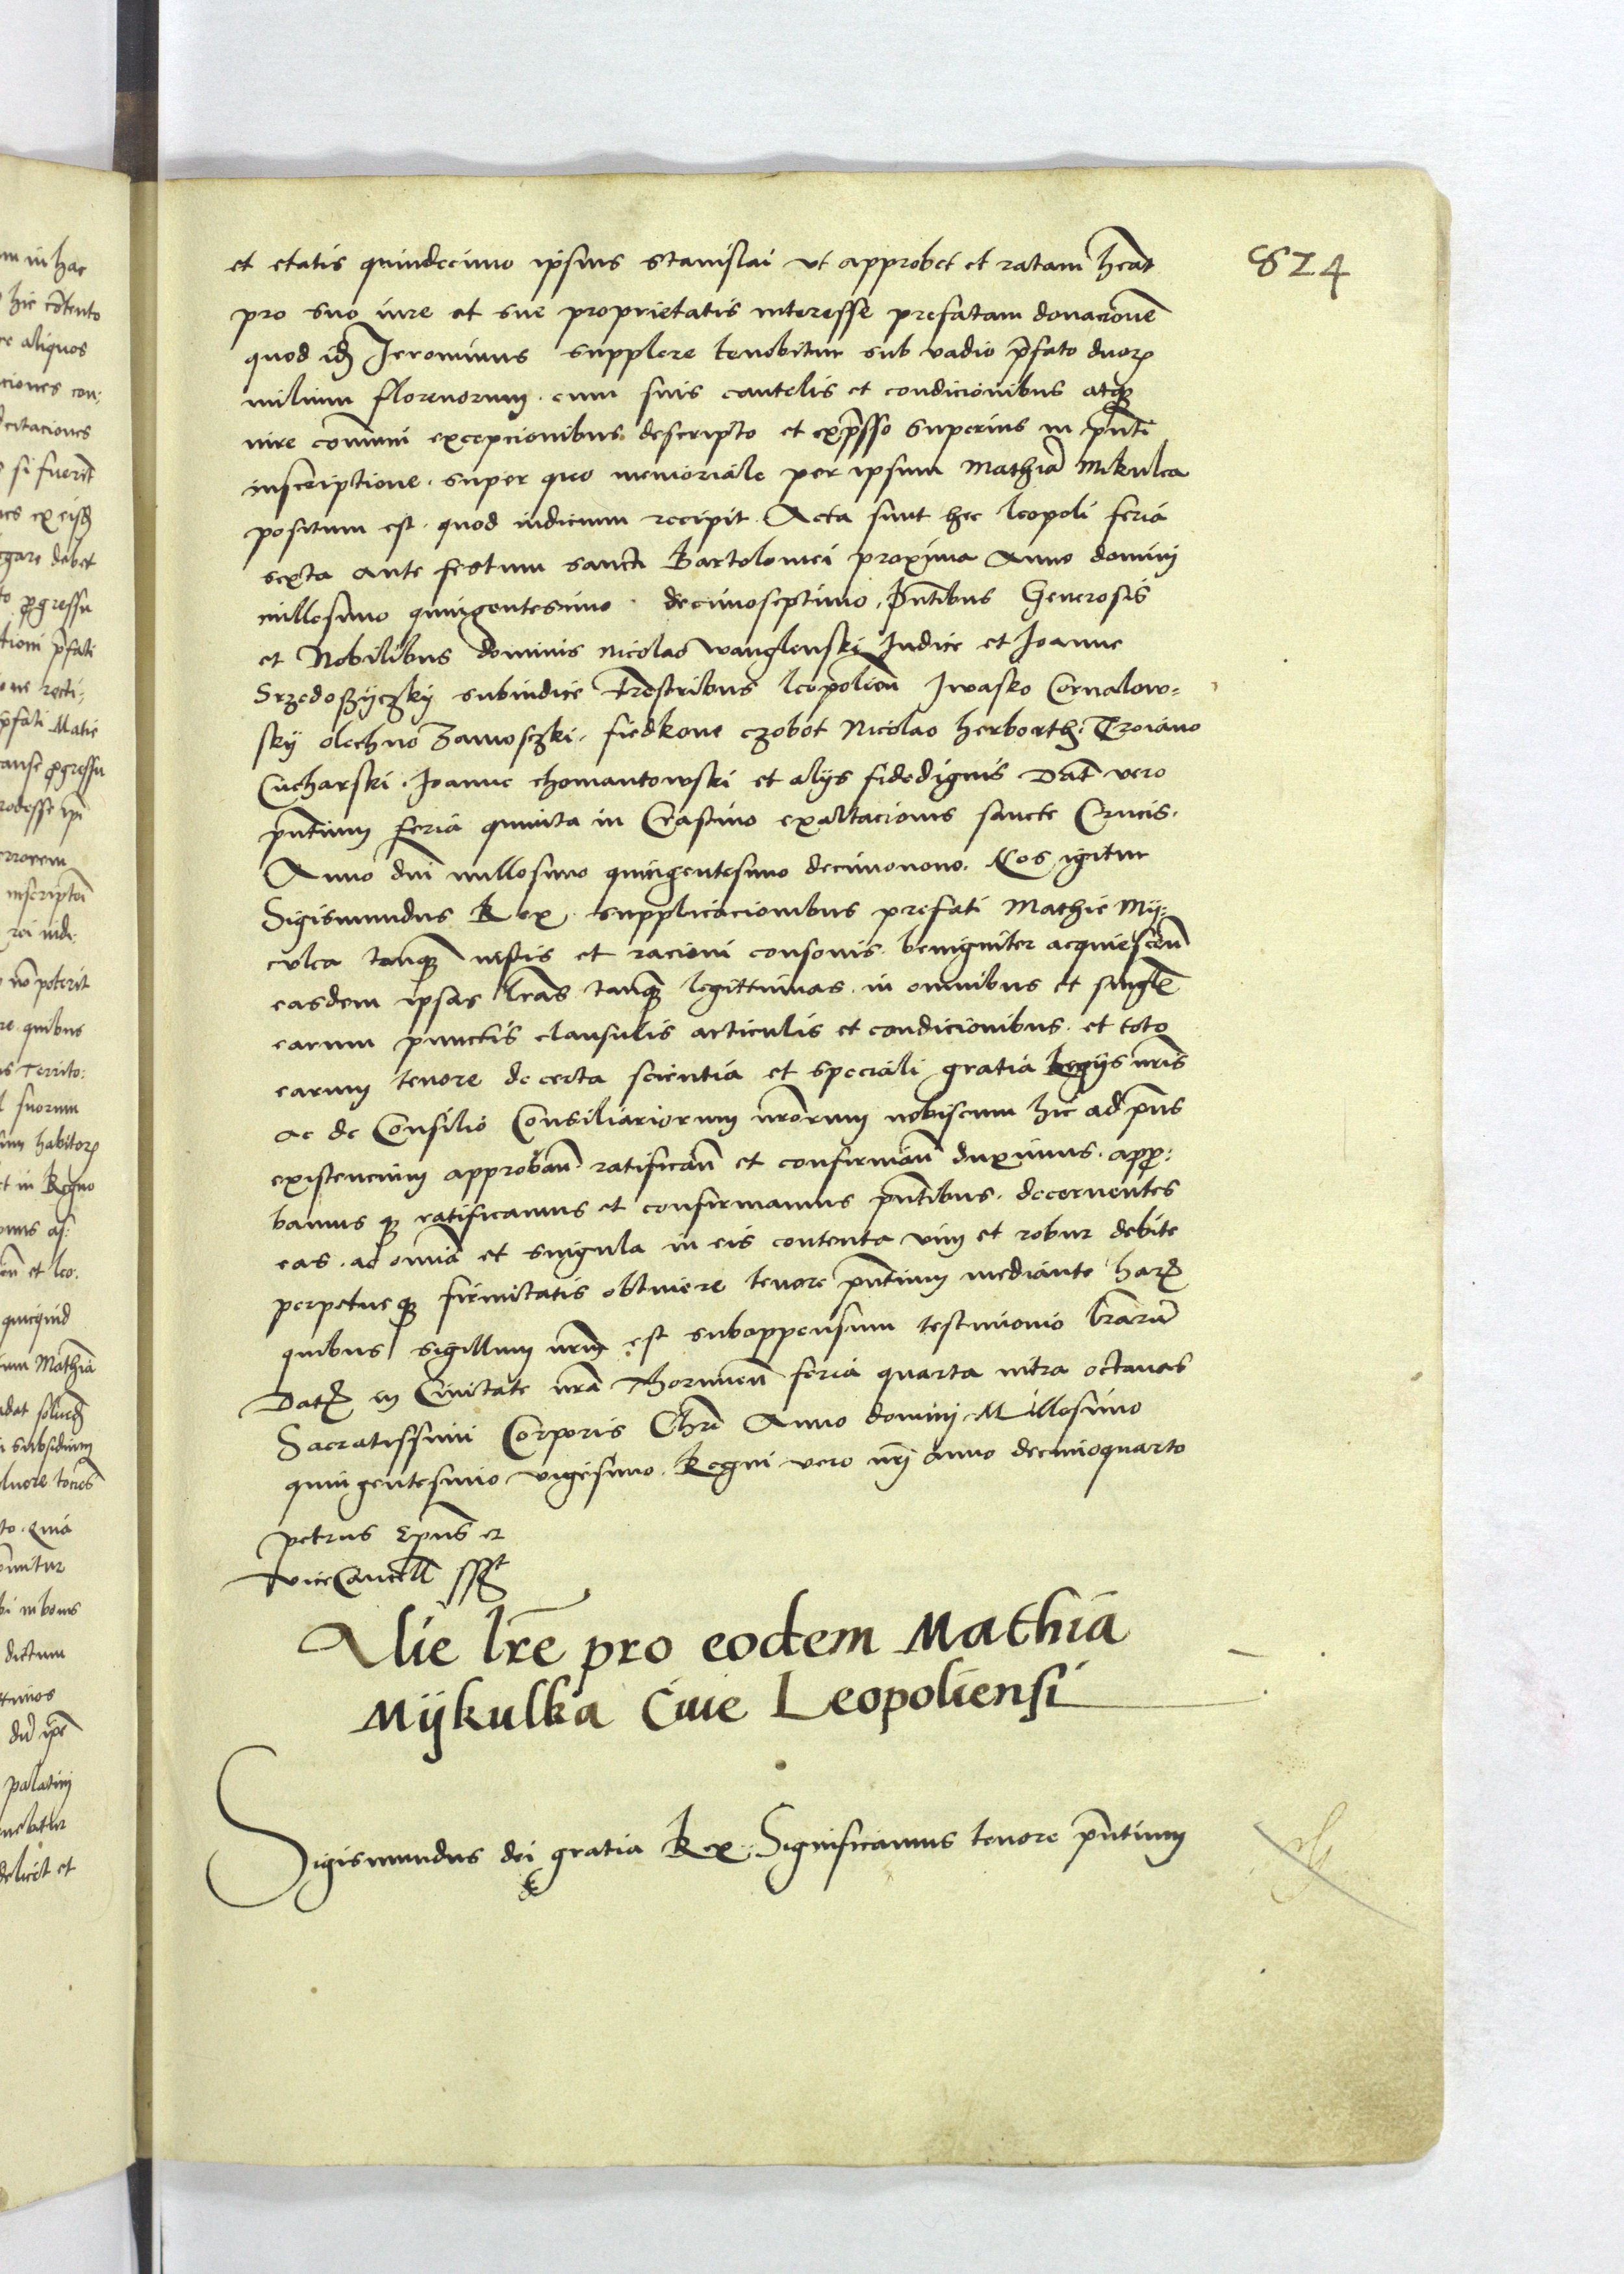 824
et etatis quindecimo ipsius Stanislai ut approbet et ratam heat
pro suo iure et sue proprietatis interesse prefatam donacionē
quod idē Jeronimus supplere tenebitur sub vadio p̄fato duorū
milium florenorum cum suis cautelis et condicionibus atq
iure com̄uni excepcionibus descripto et exp̄sso superius in pn̄ti
inscriptione. super quo memoriale per ipsum Mathiā Mikulca
positum est. quod iudicium recipit. Acta sunt hec leopoli feria
sexta ante festum sancti Bartolomei proxima Anno domini
millesimo quingentesimo decimoseptimo. Pn̄tibus Generosis
et Nobilibus dominis Nicolao wanglenski Judice et Joanne
Srzedoszyczky subiudice tr̄estribus leopolien̄ Jwasko Cornalow=
sky olechno Zamosczki. fiedkone czobot Nicolao herborth. Troiano
Cucharski. Joanne chomantowski et alijs fidedignis Dat̄ vero
pn̄tium feria quinta in Crastino exaltacionis sancte Crucis.
Anno dn̄i millesimo quingentesimo decimonono. Nos igitur
Sigismundus Rex. supplicacionibus prefati Mathie My=
culca tanq iustis et racioni consonis. benigniter acquiescen̄
easdem ipsas lr̄as tanq legittimas. in omnibus et singul̄
earum punctis clausulis articulis et condicionibus. et toto
earum tenore de certa scientia et speciali gratia Regijs nr̄is
ac de Consilio Consiliariorum nr̄orum nobiscum hic ad pn̄s
existencium approban̄ ratifican̄ et confirman̄ duximus. appro=
bamus q ratificamus et confirmamus pn̄tibus. decernentes
eas. ac om̄ia et singula in eis contenta vim et robur debite
perpetueq firmitatis obtinere tenore pn̄tium mediante harū
quibus sigillum nr̄um est subappensum testimonio lr̄arum
Datū in Civitate nr̄a Thorunen̄ feria quarta intra octavas
Sacratissimi Corporis Chri Anno domini Millesimo
quingentesimo vigesimo. Regni vero nr̄i anno decimoquarto
petrus Ep̄us et
viceCancell̄ sst
Alie lr̄e pro eodem Mathia
Mijkulka Ciue Leopoliensi
Sigismundus dei gratia Rex. Significamus tenore pn̄tium